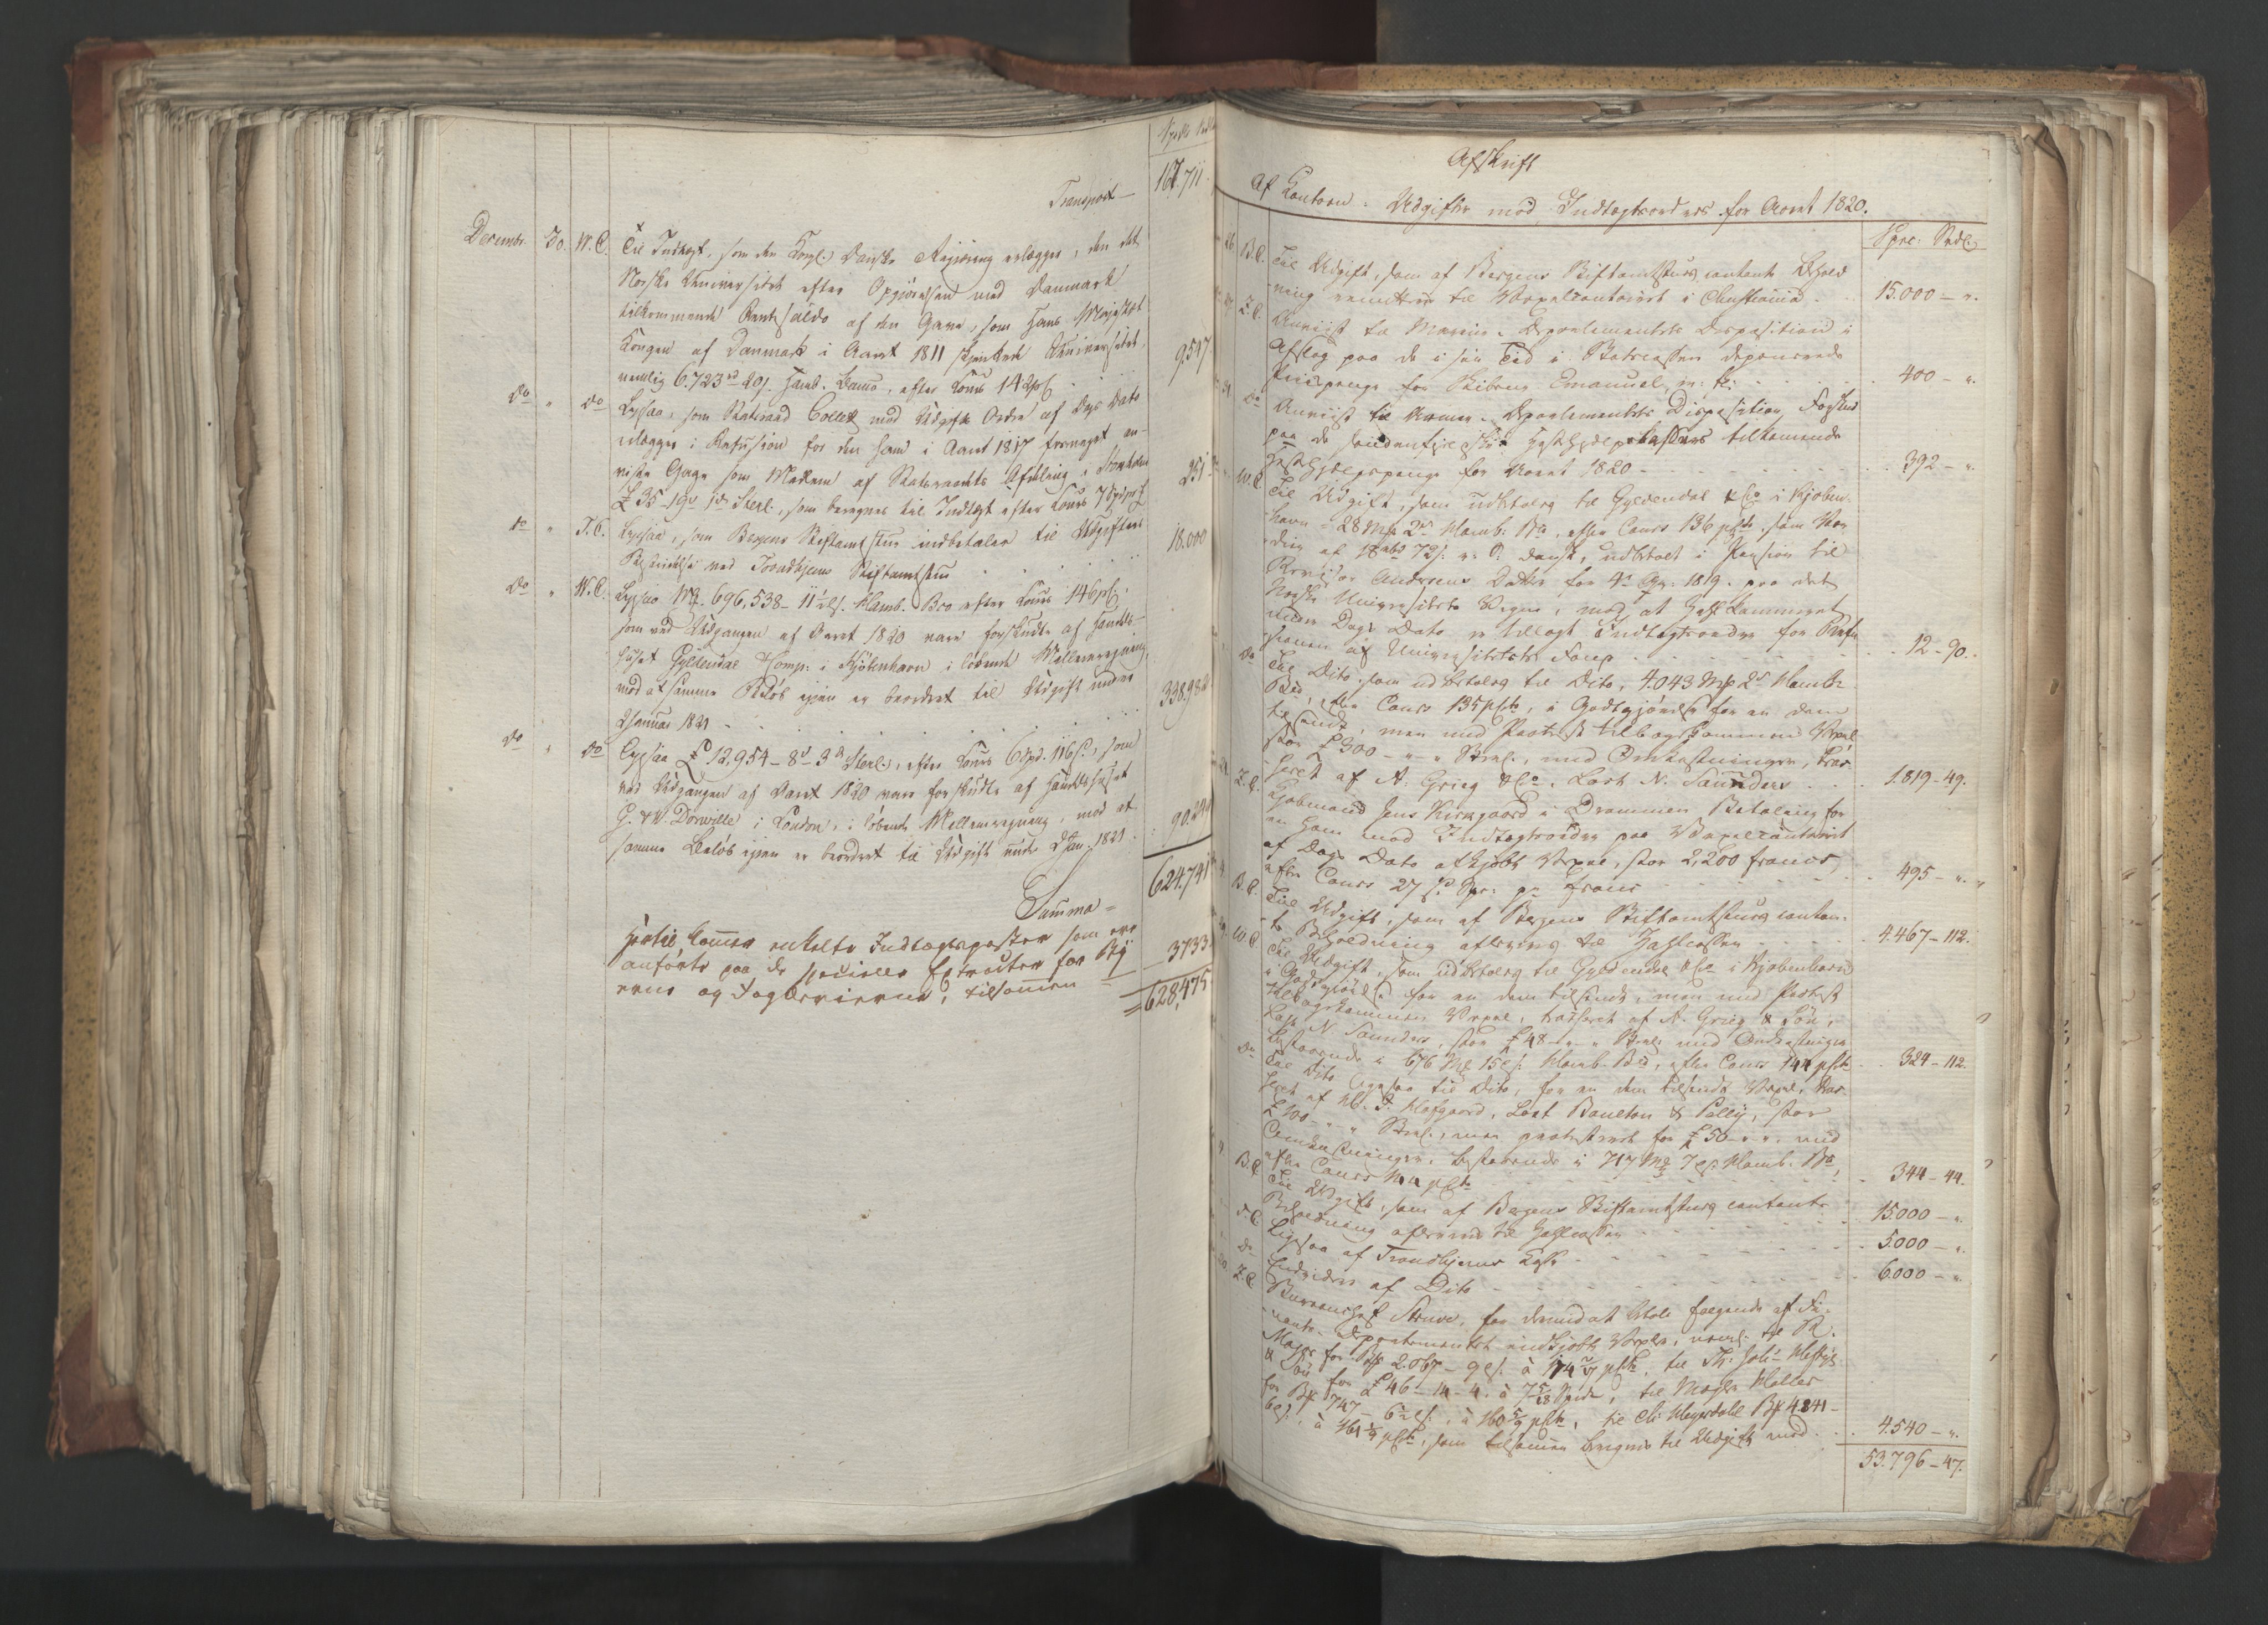 Transport — 167.711
Decembr. 30. W.C. Til Indtægt, som den Kongl. Danske Regiering erlægger, den det
Norske Universitet efter Opgiørelsen med Danmark
tilkommende Rentesaldo af den Gave, som Hans Majestæt
Kongen af Danmark i Aaret 1811 skjenkede Universitetet,
nemlig 6.723 29ſ. Hamb. Banco, efter Cours 142 9.547
do " do Ligesaa, som Statsraad Collett mod Udgifts Ordre af Dags Dato
erlægger i Refusion for den ham i Aaret 1817 formeget an-
viste Gage som Medlem af Statsraadets Afdeling i Stockholm
£ 35-19s 1d Sterl., som beregnes til Indtægt efter Cours 7 251
do " T.C. Ligesaa, som Bergens Stiftamtstue indbetaler til Udgifters
Bestridelse ved Trondhjems Stiftamtstue 18.000
do " W.C. Ligesaa 696,538-11 Hamb. Bco efter Cours 146
som ved Udgangen af Aaret 1820 vare forskudte af Handels-
huset Gyldendal & Comp: i Kjöbenhavn i löbende Mellemregning,
mod at samme Belöb igjen er beordret til Udgift under
2 Januar 1821 338.982
do " do Ligesaa £ 12,954-8s-3d Sterl., efter Cours 6 Spd. 116ſ, som
ved Udgangen af Aaret 1820 vare forskudte af Handelshuset
G. & W. Dorville i London, i löbende Mellemregning, mod at
samme Belöb igjen er beordret til Udgift under 2 Jan. 1821 90.290
Summa = 624.741
Hertil kommer enkelte Indtægtsposter som ere
anförte paa de specielle Extracter for By
erne og Fogderierne, tilsammen 3733
= 628,475
Afskrift
af Contoen: Udgifter mod Indtægtsordres for Aaret 1820.
Spec: Rdl.
B.C. Til Udgift, som af Bergens Stiftamtstues contante Behold
ning remitteres til Vexelcontoiret i Christiania 15.000 — "
Z.C. Anviist til Marine-Departementets Disposition i
Afslag paa de i sin Tid i Stats cassen deponerede
Priispenge for Skibet Emanuel 400 — "
do Anviist til Armee-Departementets Disposition, Forskud
paa de tilkomende
for Aaret 1820 392 — "
W.C. Til Udgift, som udbetales til Gyldendal & Co i Kjöben-
havn = 28 Mk 2s Hamb. Bco, efter Cours 136 som Vær
dien af 18 72ſ. danske, udbetalt i Pension til
Revisor Andresens Datter for 4de Qv. 1819. paa det
Norske Universitets Vegne, mod at Zahl Kammeret
under Dags Dato er tillagt Indtægtsordre for Refu
sionen af Universitetets Fond 12-90.
do Til Dito, som udbetales til Dito, 4.043 Mk 2s Hambr
Bco, efter Cours 135 i Godtgjörelse for en dem
tilsendt, men med Protest tilbagekommen Vexel
stor £ 300 — " — " Sterl., med Omkostninger, tras-
seret af A. Grieg & Co. Lost N. Saunders 1.819-49.
Z.C. Kjöbmand Jens Kirkgaard i Drammen Betaling for
en ham mod Indtægtsordre paa Vexelcontoiret
af Dags Dato afkjöbt Vexel, stor 2,200 francs,
efter Cours 27 ſ. Spec: pr franc 495 — "
B.C. Til Udgift, som af Bergens Stiftamtstues contan-
te Beholdning afleveres til Zahlcassen 4.467-112.
W.C. Til Udgift, som udbetales til Gyldendal & Co i Kjöbenhavn
i Godtgjörelse for en dem tilsendt, men med Protest
tilbagekommen Vexel, trasseret af A. Grieg & Sön,
Lost N. Saunders, stor £ 48 — " — " Sterl. med Omkostninger
bestaaende i 676 Mk 15 Hamb. Bco, efter Cours 144 324-112.
do Til Dito ligesaa til Dito, for en dem tilsendt Vexel, tras-
seret af Lost Boulton & Pelly, stor
£ 100 — " — " Sterl., men protesteret for £ 50 — " — " med
Omkostninger, bestaaende i 717 Mk 7 Hamb. Bco,
efter Cours 144 344-44.
B.C. Til Udgift, som af Bergens Stiftamtstues contante
Beholdning afleveres til Zahlcassen 15.000 — "
T.C. Ligesaa af Trondhjems Casse 5.000 — "
do Endvidere af Dito 6.000 — "
Z.C. Bureauchef Struve, for dermed at betale følgende af Fi-
nants-Departementet indkjöbte Vexler, nemlig til R.
for 2.067 — 9 à 174 til Th: Joh: Heftye
& Sön for £ 46-14-4. à 7 til Mayer Möller
for 747 — 6 à 160 til Heyerdahl 4841 —
6 à 161 som tilsamen beregnes til Udgift med 4.540 — "
53.796-47.